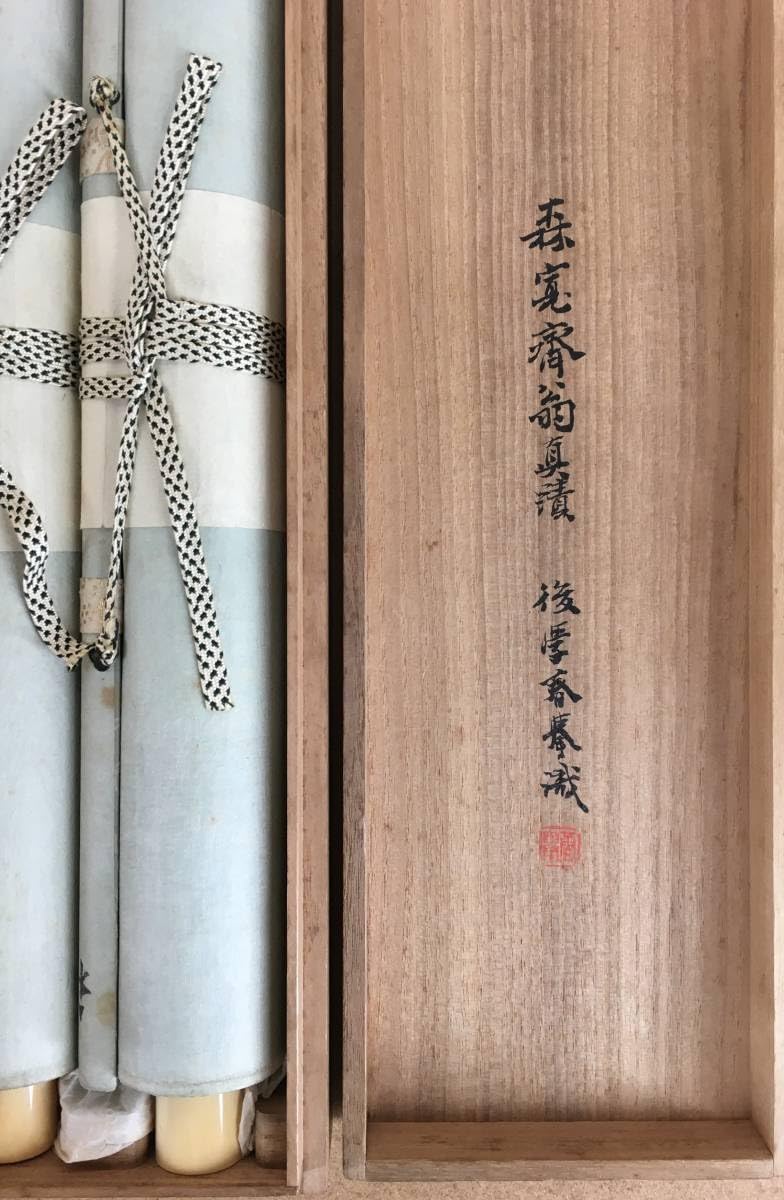 森寛齋翁真蹟 後學春擧識